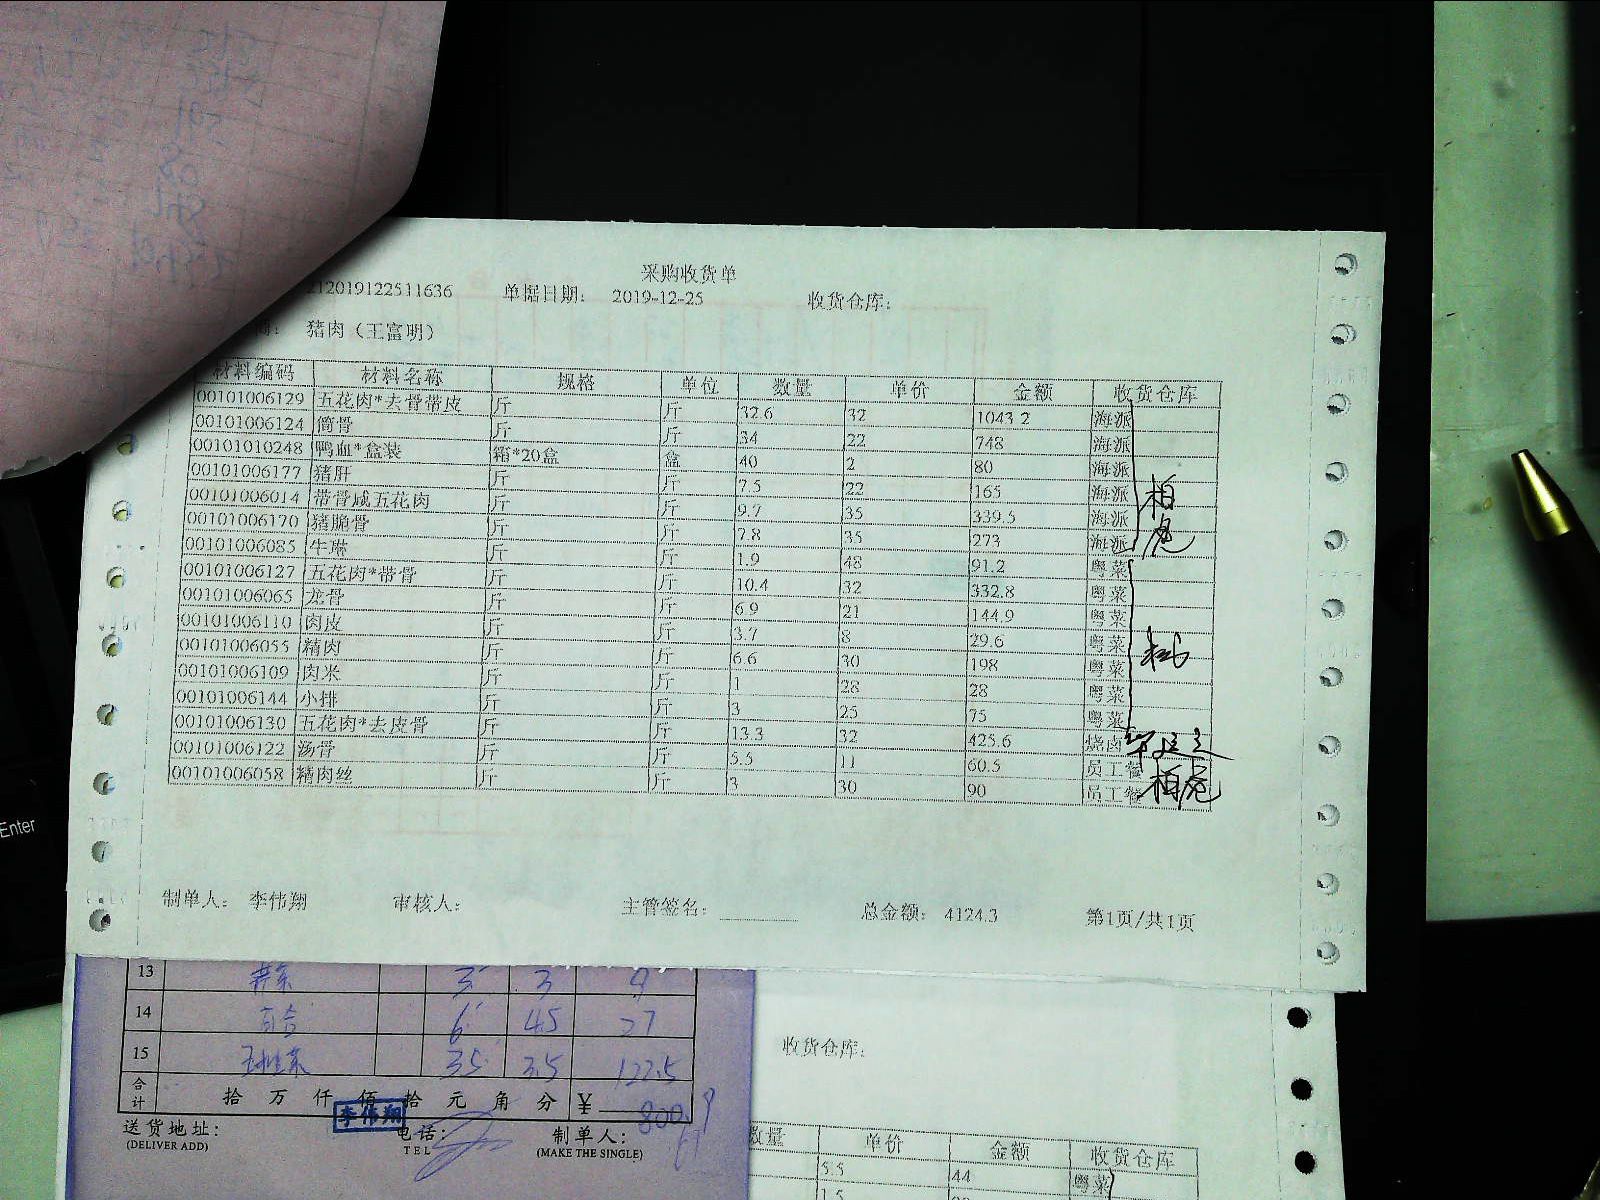 采购收货单
212019122511636 单据日期: 2019-12-25 收货仓库:
猪肉（王富明）
材料编码 材料名称 规格 单位 数量 单价 金额 收货仓库
00101006129 五花肉*去骨带皮 斤 斤 32.6 32 1043.2 海派
00101006124 筒骨 斤 斤 34 22 748 海派
00101010248 鸭血*盒装 箱*20盒 盒 40 2 80 海派
00101006177 猪肝 斤 斤 7.5 22 165 海派
00101006014 带骨咸五花肉 斤 斤 9.7 35 339.5 海派
00101006170 猪脆骨 斤 斤 7.8 35 273 海派
00101006085 牛琳 斤 斤 1.9 48 91.2 粤菜
00101006127 五花肉*带骨 斤 斤 10.4 32 332.8 粤菜
00101006065 龙骨 斤 斤 6.9 21 144.9 粤菜
00101006110 肉皮 斤 斤 3.7 8 29.6 粤菜
00101006055 精肉 斤 斤 6.6 30 198 粤菜
00101006109 肉米 斤 斤 1 28 28 粤菜
00101006144 小排 斤 斤 3 25 75 粤菜
00101006130 五花肉*去皮骨 斤 斤 13.3 32 425.6 烧卤
00101006122 汤骨 斤 斤 5.5 11 60.5 员工餐
00101006058 精肉丝 斤 斤 3 30 90 员工餐
制单人: 李伟翔 审核人: 主管签名: 总金额: 4124.3 第1页/共1页
Enter
13 3 3 9
14 百合 6 4.5 27
15 35 3.5 122.5
合计 拾 万 仟 佰 拾 元 角 分 ¥ 800
李伟翔
送货地址: 电话: 制单人:
(DELIVER ADD) TEL (MAKE THE SINGLE)
收货仓库:
数量 单价 金额 收货仓库
5.5 44 粤菜
1.5